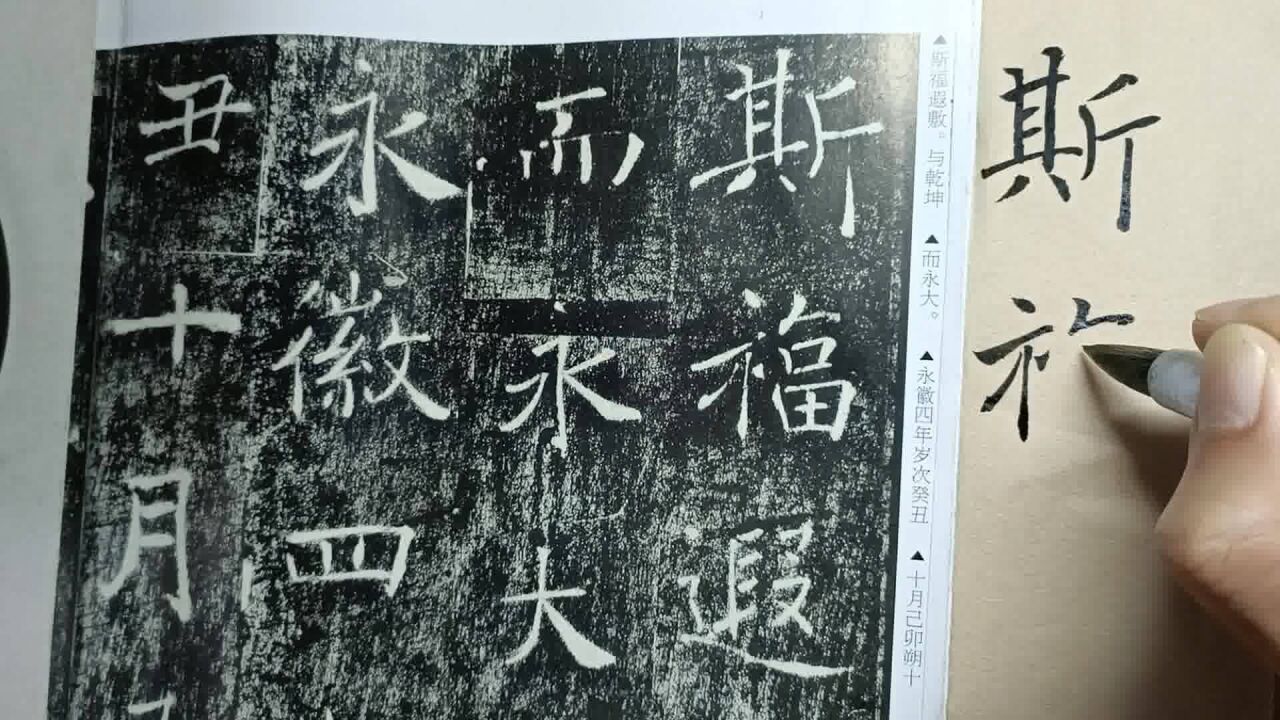 斯福遐
而永大
永徽四
丑十月
▲斯福遐敷。与乾坤 ▲而永大。 ▲永徽四年岁次癸丑 ▲十月己卯朔十
斯